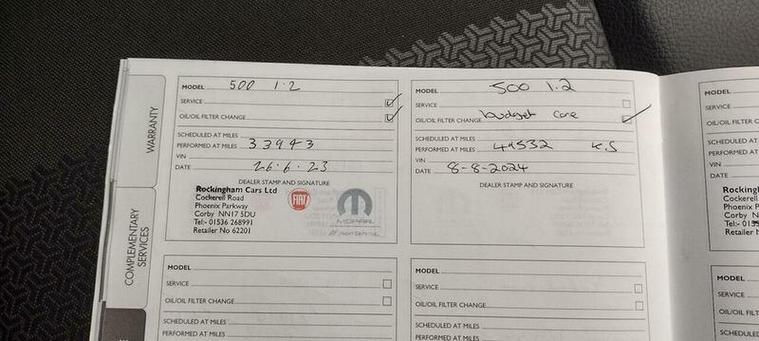 WARRANTY
COMPLEMENTARY
SERVICES
MODEL 500 1.2
SERVICE
OIL/OIL FILTER CHANGE
SCHEDULED AT MILES
PERFORMED AT MILES 33943
VIN
DATE 26.6.23
DEALER STAMP AND SIGNATURE
Rockingham Cars Ltd
Cockerell Road
Phoenix Parkway
Corby NN17 5DU
Tel:- 01536 268991
Retailer No 62201
FIAT
MOPAR
MODEL 500 1.2
SERVICE
OIL/OIL FILTER CHANGE budget care
SCHEDULED AT MILES
PERFORMED AT MILES 44532 K.S
VIN
DATE 8-8-2024
DEALER STAMP AND SIGNATURE
MODEL
SERVICE
OIL/OIL FILTER C
SCHEDULED AT
PERFORMED AT
VIN
DATE
Rocking
Cockerel
Phoenix P
Corby N
Tel:- 015
Retailer N
MODEL
SERVICE
OIL/OIL FILTER CHANGE
SCHEDULED AT MILES
PERFORMED AT MILES
MODEL
SERVICE
OIL/OIL FILTER CHANGE
SCHEDULED AT MILES
PERFORMED AT MILES
MODEL
SERVICE
OIL/OIL FILT
SCHEDULED